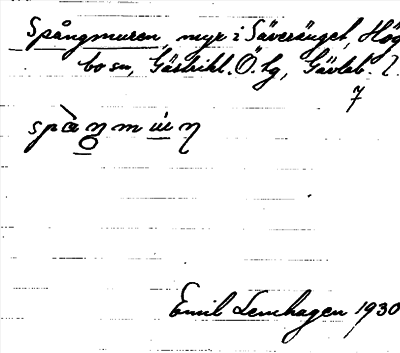 Spångmuren, myr i Säveränget, Hög
bo sn, Gästrikl. Ö. tg, Gävleb. l
7
Emil Lenhagen 1930